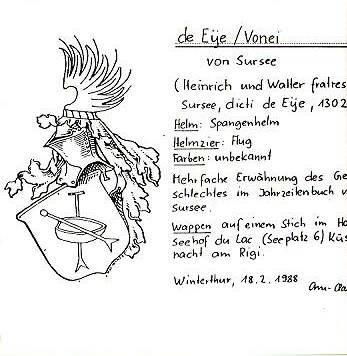 de Eÿe / Vonei
von Sursee
(Heinrich und Walter fratres
Sursee, dicti de Eÿe, 1302
Helm: Spangenhelm
Helmzier: Flug
Farben: unbekannt
Mehrfache Erwähnung des Ge
schlechtes im Jahrzeitenbuch v
Sursee.
Wappen auf einem Stich im Ho
seehof du Lac (Seeplatz 6) Küs
nacht am Rigi.
Winterthur, 18.2.1988